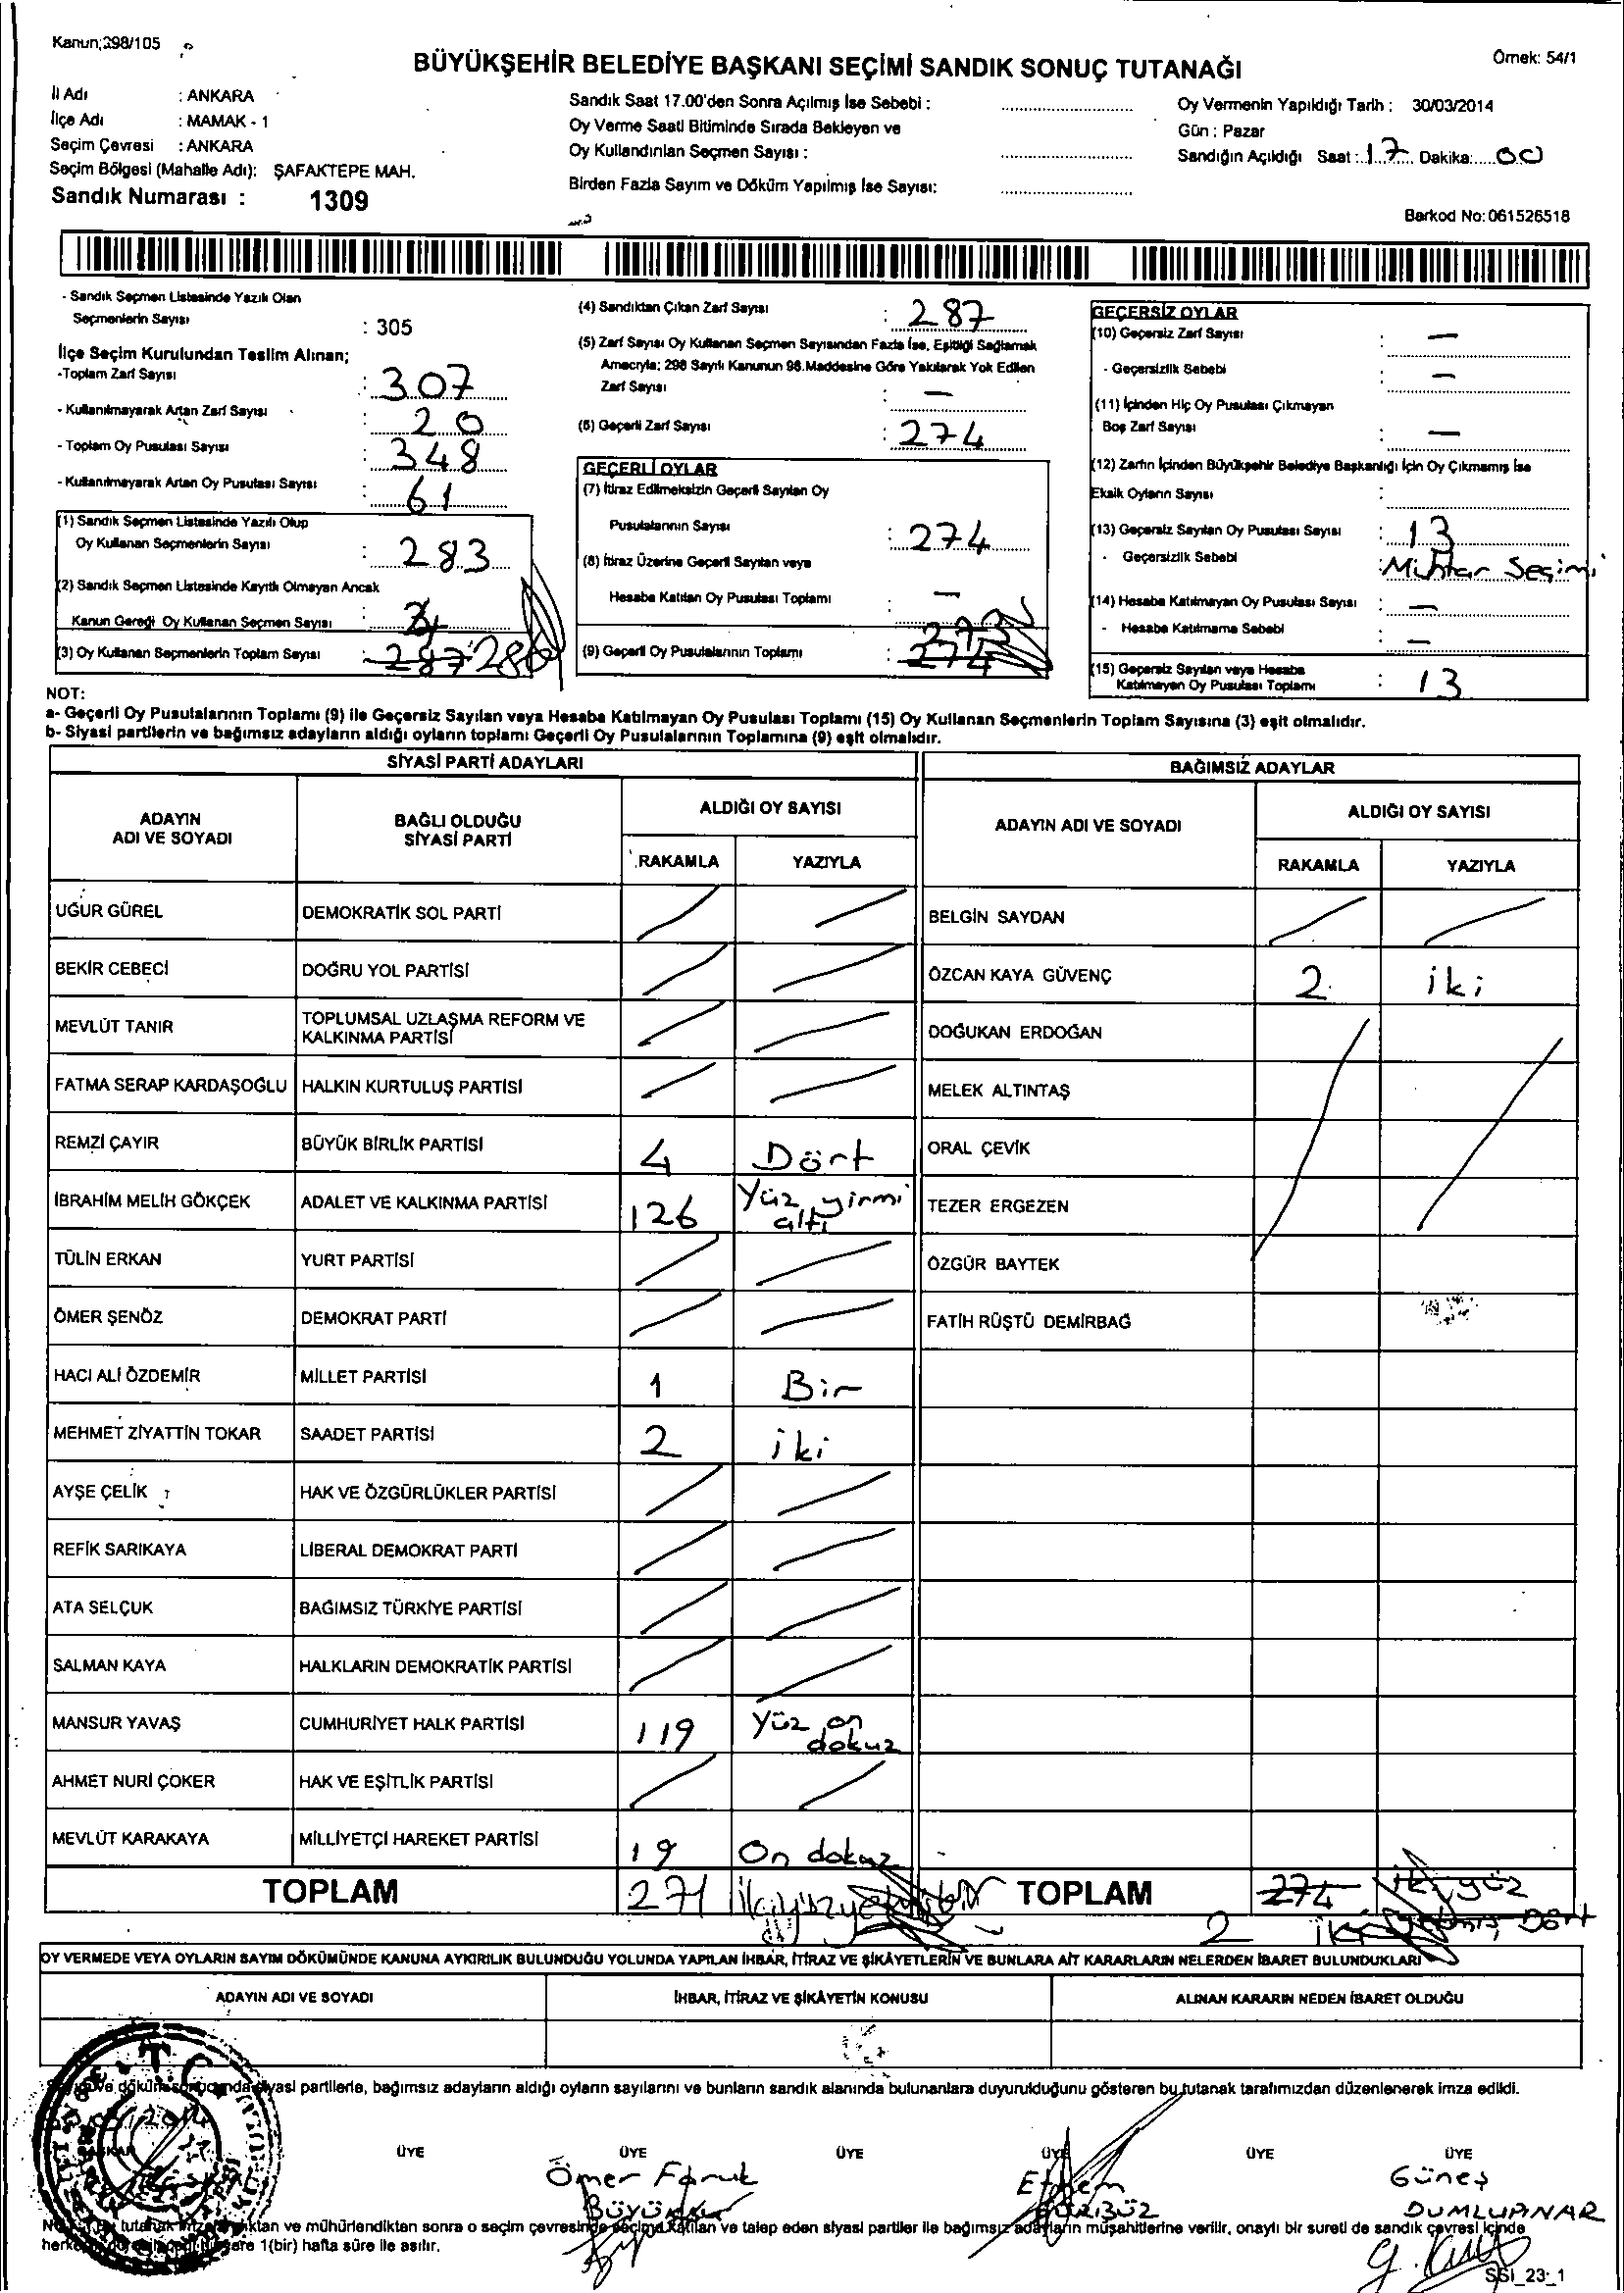 Kanun;298/105
Örnek: 54/1
BÜYÜKŞEHİR BELEDİYE BAŞKANI SEÇİMİ SANDIK SONUÇ TUTANAĞI
İl Adı : ANKARA
İlçe Adı : MAMAK - 1
Seçim Çevresi : ANKARA
Seçim Bölgesi (Mahalle Adı): ŞAFAKTEPE MAH.
Sandık Numarası : 1309
Sandık Saat 17.00'den Sonra Açılmış İse Sebebi :
Oy Verme Saati Bitiminde Sırada Bekleyen ve
Oy Kullandırılan Seçmen Sayısı :
Birden Fazla Sayım ve Döküm Yapılmış İse Sayısı:
Oy Vermenin Yapıldığı Tarih : 30/03/2014
Gün : Pazar
Sandığın Açıldığı Saat : 17 Dakika: 00
Barkod No: 061526518
- Sandık Seçmen Listesinde Yazılı Olan
Seçmenlerin Sayısı : 305
İlçe Seçim Kurulundan Teslim Alınan;
-Toplam Zarf Sayısı : 307
- Kullanılmayarak Artan Zarf Sayısı : 20
- Toplam Oy Pusulası Sayısı : 348
- Kullanılmayarak Artan Oy Pusulası Sayısı : 61
(1) Sandık Seçmen Listesinde Yazılı Olup
Oy Kullanan Seçmenlerin Sayısı : 283
(2) Sandık Seçmen Listesinde Kayıtlı Olmayan Ancak
Kanun Gereği Oy Kullanan Seçmen Sayısı :
(3) Oy Kullanan Seçmenlerin Toplam Sayısı : 287 286
(4) Sandıktan Çıkan Zarf Sayısı : 287
(5) Zarf Sayısı Oy Kullanan Seçmen Sayısından Fazla İse, Eşitliği Sağlamak
Amacıyla; 298 Sayılı Kanunun 98.Maddesine Göre Yakılarak Yok Edilen
Zarf Sayısı : —
(6) Geçerli Zarf Sayısı : 274
GEÇERLİ OYLAR
(7) İtiraz Edilmeksizin Geçerli Sayılan Oy
Pusulalarının Sayısı : 274
(8) İtiraz Üzerine Geçerli Sayılan veya
Hesaba Katılan Oy Pusulası Toplamı : —
(9) Geçerli Oy Pusulalarının Toplamı : 274 273
GEÇERSİZ OYLAR
(10) Geçersiz Zarf Sayısı : —
- Geçersizlik Sebebi : —
(11) İçinden Hiç Oy Pusulası Çıkmayan
Boş Zarf Sayısı : —
(12) Zarfın İçinden Büyükşehir Belediye Başkanlığı İçin Oy Çıkmamış İse
Eksik Oyların Sayısı :
(13) Geçersiz Sayılan Oy Pusulası Sayısı : 13
- Geçersizlik Sebebi : Muhtar Seçimi
(14) Hesaba Katılmayan Oy Pusulası Sayısı : —
- Hesaba Katılmama Sebebi : —
(15) Geçersiz Sayılan veya Hesaba
Katılmayan Oy Pusulası Toplamı : 13
NOT:
a- Geçerli Oy Pusulalarının Toplamı (9) ile Geçersiz Sayılan veya Hesaba Katılmayan Oy Pusulası Toplamı (15) Oy Kullanan Seçmenlerin Toplam Sayısına (3) eşit olmalıdır.
b- Siyasi partilerin ve bağımsız adayların aldığı oyların toplamı Geçerli Oy Pusulalarının Toplamına (9) eşit olmalıdır.
SİYASİ PARTİ ADAYLARI
ADAYIN ADI VE SOYADI
BAĞLI OLDUĞU SİYASİ PARTİ
ALDIĞI OY SAYISI
RAKAMLA YAZIYLA
UĞUR GÜREL DEMOKRATİK SOL PARTİ
BEKİR CEBECİ DOĞRU YOL PARTİSİ
MEVLÜT TANIR TOPLUMSAL UZLAŞMA REFORM VE KALKINMA PARTİSİ
FATMA SERAP KARDAŞOĞLU HALKIN KURTULUŞ PARTİSİ
REMZİ ÇAYIR BÜYÜK BİRLİK PARTİSİ 4 Dört
İBRAHİM MELİH GÖKÇEK ADALET VE KALKINMA PARTİSİ 126 Yüz yirmi altı
TÜLİN ERKAN YURT PARTİSİ
ÖMER ŞENÖZ DEMOKRAT PARTİ
HACI ALİ ÖZDEMİR MİLLET PARTİSİ 1 Bir
MEHMET ZİYATTİN TOKAR SAADET PARTİSİ 2 iki
AYŞE ÇELİK HAK VE ÖZGÜRLÜKLER PARTİSİ
REFİK SARIKAYA LİBERAL DEMOKRAT PARTİ
ATA SELÇUK BAĞIMSIZ TÜRKİYE PARTİSİ
SALMAN KAYA HALKLARIN DEMOKRATİK PARTİSİ
MANSUR YAVAŞ CUMHURİYET HALK PARTİSİ 119 Yüz on dokuz
AHMET NURİ ÇOKER HAK VE EŞİTLİK PARTİSİ
MEVLÜT KARAKAYA MİLLİYETÇİ HAREKET PARTİSİ 19 On dokuz
TOPLAM 271
BAĞIMSIZ ADAYLAR
ADAYIN ADI VE SOYADI
ALDIĞI OY SAYISI
RAKAMLA YAZIYLA
BELGİN SAYDAN
ÖZCAN KAYA GÜVENÇ 2 iki
DOĞUKAN ERDOĞAN
MELEK ALTINTAŞ
ORAL ÇEVİK
TEZER ERGEZEN
ÖZGÜR BAYTEK
FATİH RÜŞTÜ DEMİRBAĞ
TOPLAM 274 ikiyüz yetmiş Dört
2 İki
OY VERMEDE VEYA OYLARIN SAYIM DÖKÜMÜNDE KANUNA AYKIRILIK BULUNDUĞU YOLUNDA YAPILAN İHBAR, İTİRAZ VE ŞİKÂYETLERİN VE BUNLARA AİT KARARLARIN NELERDEN İBARET BULUNDUKLARI
ADAYIN ADI VE SOYADI
İHBAR, İTİRAZ VE ŞİKÂYETİN KONUSU
ALINAN KARARIN NEDEN İBARET OLDUĞU
siyasi partilerle, bağımsız adayların aldığı oyların sayılarını ve bunların sandık alanında bulunanlara duyurulduğunu gösteren bu tutanak tarafımızdan düzenlenerek imza edildi.
BAŞKAN ÜYE ÜYE ÜYE ÜYE ÜYE ÜYE
Ömer Faruk
Ethem
GÜRBÜZ
Güneş
DUMLUPINAR
ve mühürlendikten sonra o seçim çevresinde seçime katılan ve talep eden siyasi partiler ile bağımsız adayların müşahitlerine verilir, onaylı bir sureti de sandık çevresi içinde
1(bir) hafta süre ile asılır.
SSI_23_1